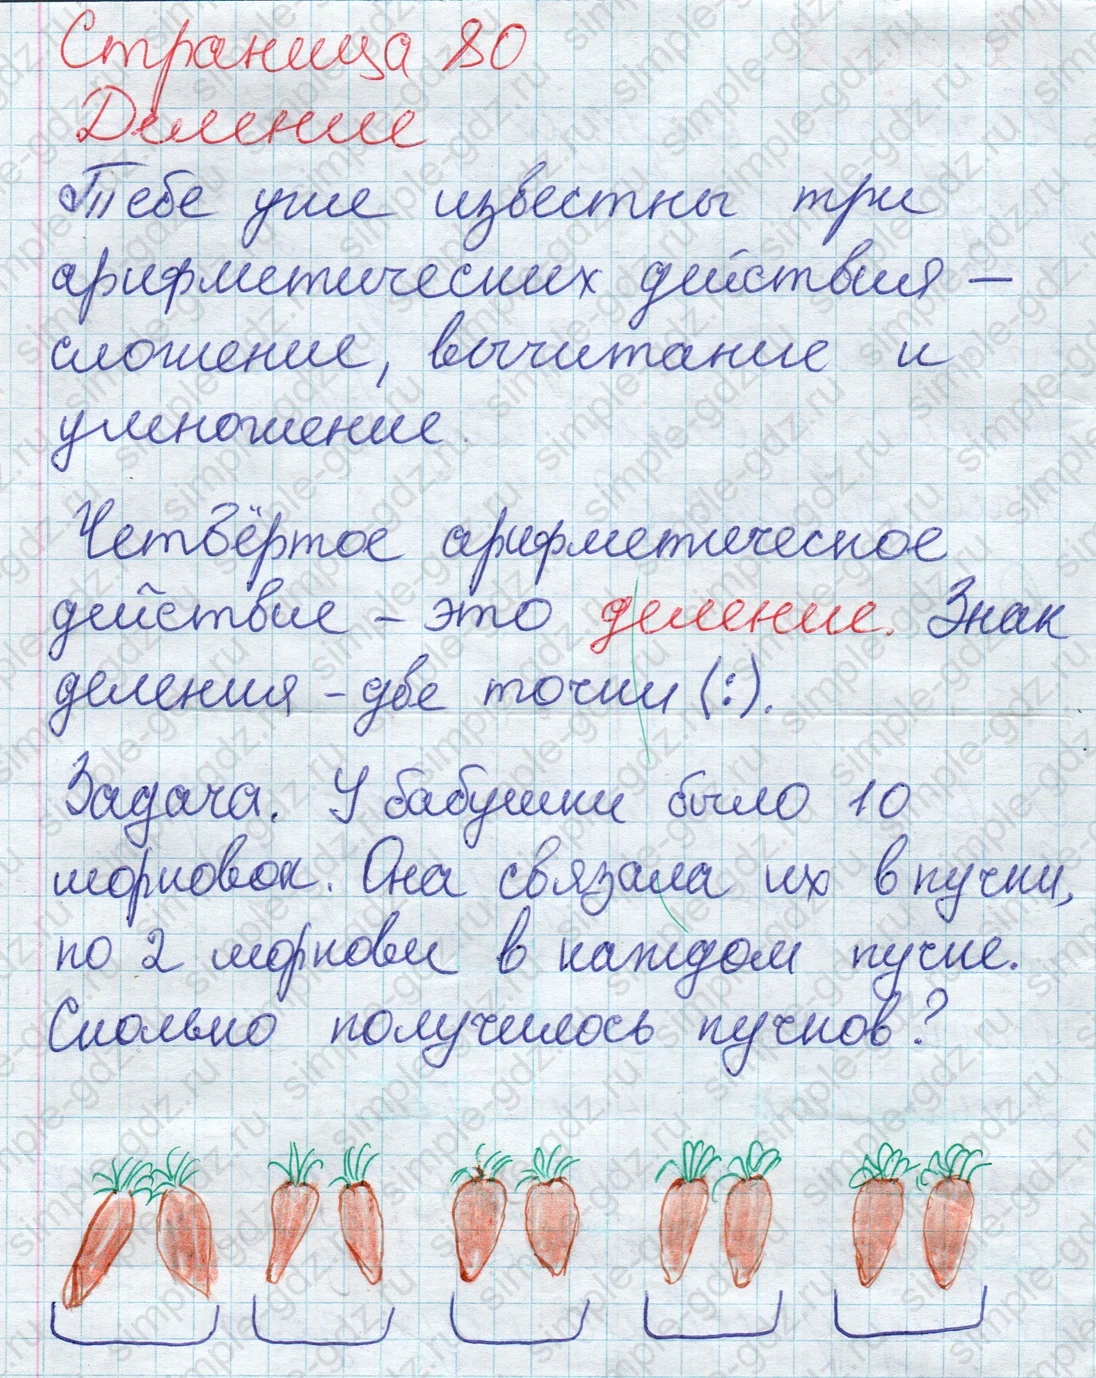 Страница 80
Деление
Тебе уже известны три
арифметических действия —
сложение, вычитание и
умножение.
Четвёртое арифметическое
действие - это деление. Знак
деления - две точки (:).
Задача. У бабушки было 10
морковок. Она связала их в пучки,
по 2 моркови в каждом пучке.
Сколько получилось пучков?
simple-gdz.ru